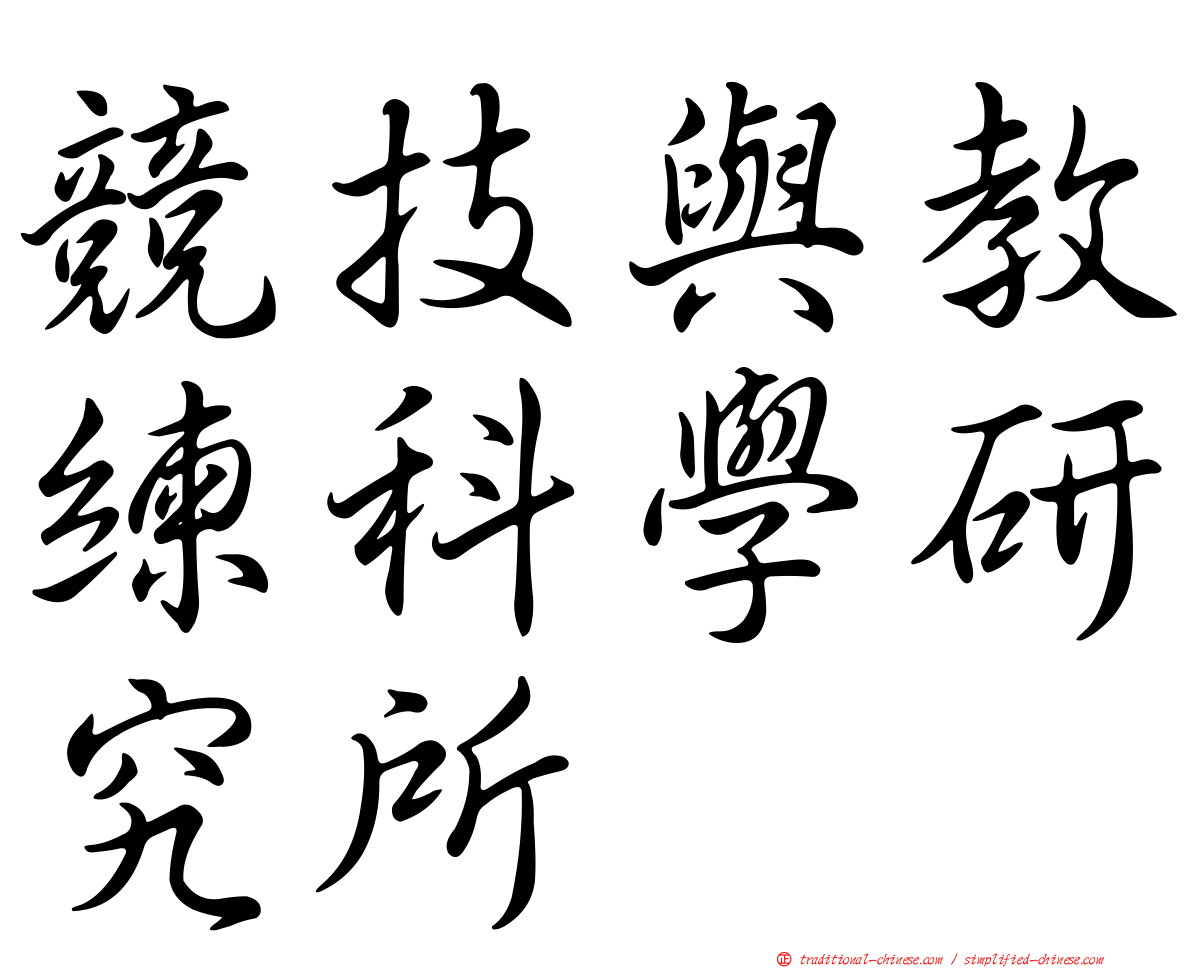 競技與教
練科學研
究所
正 traditional-chinese.com / simplified-chinese.com